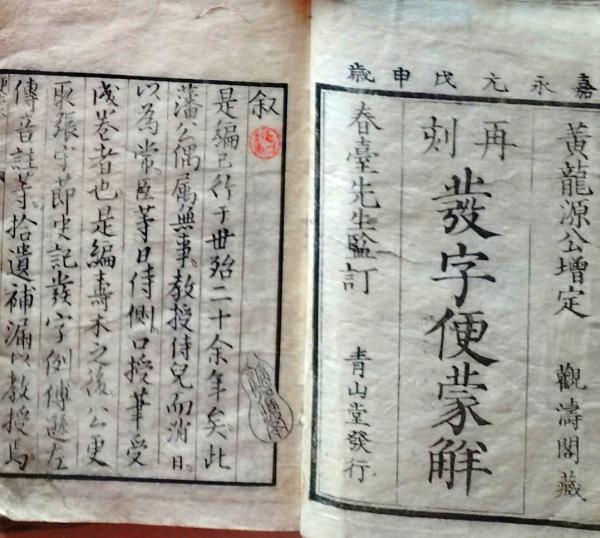 嘉永元戊申歲
黃龍源公增定　觀濤閣藏
再刻
發字便蒙解
春臺先生監訂　青山堂發行
叙
是編已行于世殆二十余年矣此
藩公偶属無事教授侍兒而消日
以為常臣等日侍側口授筆受
成卷者也是編壽木之後公更
取張守節史記發字例傅遜左
傳音註等拾遺補漏以教授焉